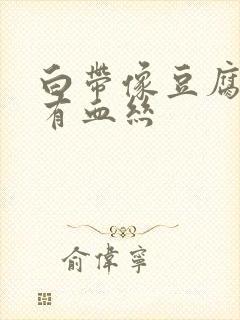 白帶像豆腐
有血絲
俞偉寧